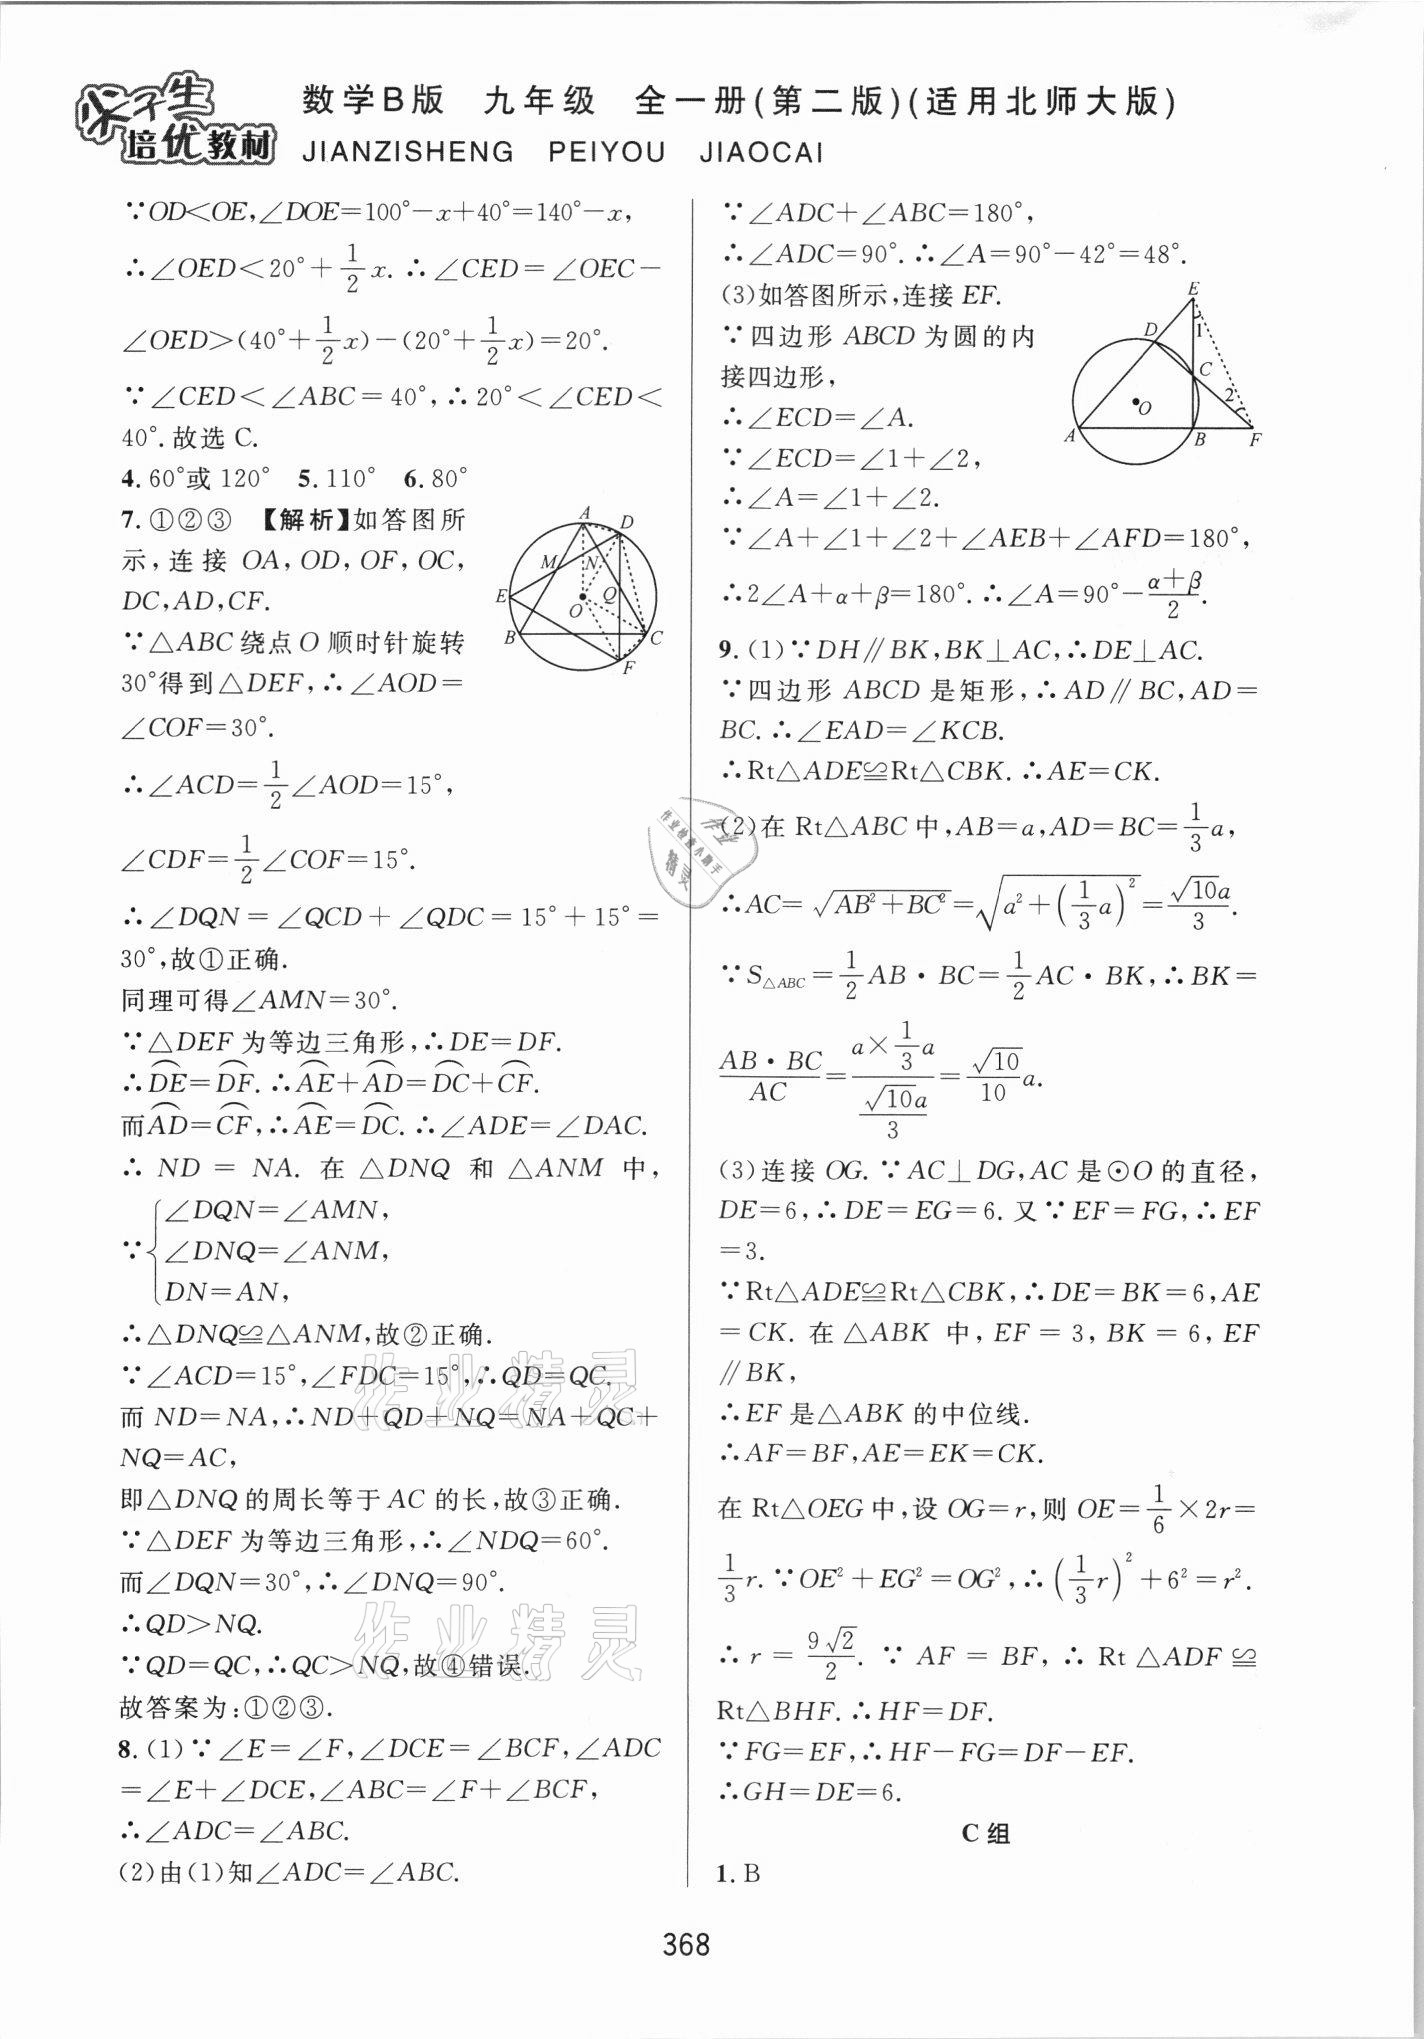 尖子生
培优教材
数学B版 九年级 全一册(第二版)(适用北师大版)
JIANZISHENG PEIYOU JIAOCAI
∵OD<OE,∠DOE=100°-x+40°=140°-x,
∴∠OED<20°+1/2x.∴∠CED=∠OEC-
∠OED>(40°+1/2x)-(20°+1/2x)=20°.
∵∠CED<∠ABC=40°,∴20°<∠CED<
40°.故选C.
4.60°或120° 5.110° 6.80°
7.①②③ 【解析】如答图所
示,连接 OA,OD,OF,OC,
DC,AD,CF.
∵△ABC绕点O顺时针旋转
30°得到△DEF,∴∠AOD=
∠COF=30°.
A D M N E O Q B C F
∴∠ACD=1/2∠AOD=15°,
∠CDF=1/2∠COF=15°.
∴∠DQN=∠QCD+∠QDC=15°+15°=
30°,故①正确.
同理可得∠AMN=30°.
∵△DEF为等边三角形,∴DE=DF.
∴⌒DE=⌒DF.∴⌒AE+⌒AD=⌒DC+⌒CF.
而⌒AD=⌒CF,∴⌒AE=⌒DC.∴∠ADE=∠DAC.
∴ ND = NA. 在 △DNQ 和 △ANM 中,
∠DQN=∠AMN,
∵{∠DNQ=∠ANM,
DN=AN,
∴△DNQ≌△ANM,故②正确.
∵∠ACD=15°,∠FDC=15°,∴QD=QC.
而ND=NA,∴ND+QD+NQ=NA+QC+
NQ=AC,
即△DNQ的周长等于AC的长,故③正确.
∵△DEF为等边三角形,∴∠NDQ=60°.
而∠DQN=30°,∴∠DNQ=90°.
∴QD>NQ.
∵QD=QC,∴QC>NQ,故④错误.
故答案为:①②③.
8.(1)∵∠E=∠F,∠DCE=∠BCF,∠ADC
=∠E+∠DCE,∠ABC=∠F+∠BCF,
∴∠ADC=∠ABC.
(2)由(1)知∠ADC=∠ABC.
∵∠ADC+∠ABC=180°,
∴∠ADC=90°.∴∠A=90°-42°=48°.
(3)如答图所示,连接EF.
∵四边形ABCD为圆的内
接四边形,
∴∠ECD=∠A.
∵∠ECD=∠1+∠2,
∴∠A=∠1+∠2.
E D 1 C 2 O A B F
∵∠A+∠1+∠2+∠AEB+∠AFD=180°,
∴2∠A+α+β=180°.∴∠A=90°-(α+β)/2.
9.(1)∵DH∥BK,BK⊥AC,∴DE⊥AC.
∵四边形ABCD是矩形,∴AD∥BC,AD=
BC.∴∠EAD=∠KCB.
∴Rt△ADE≌Rt△CBK.∴AE=CK.
(2)在Rt△ABC中,AB=a,AD=BC=1/3a,
∴AC=√(AB²+BC²)=√(a²+(1/3a)²)=√10a/3.
∵S△ABC=1/2AB·BC=1/2AC·BK,∴BK=
(AB·BC)/AC=(a×1/3a)/(√10a/3)=√10/10a.
(3)连接OG.∵AC⊥DG,AC是⊙O的直径,
DE=6,∴DE=EG=6.又∵EF=FG,∴EF
=3.
∵Rt△ADE≌Rt△CBK,∴DE=BK=6,AE
=CK.在△ABK中,EF=3,BK=6,EF
∥BK,
∴EF是△ABK的中位线.
∴AF=BF,AE=EK=CK.
在Rt△OEG中,设OG=r,则OE=1/6×2r=
1/3r.∵OE²+EG²=OG²,∴(1/3r)²+6²=r².
∴r=9√2/2. ∵ AF = BF, ∴ Rt △ADF ≌
Rt△BHF.∴HF=DF.
∵FG=EF,∴HF-FG=DF-EF.
∴GH=DE=6.
C组
1.B
作业检查小助手
精灵
作业精灵
作业精灵
368